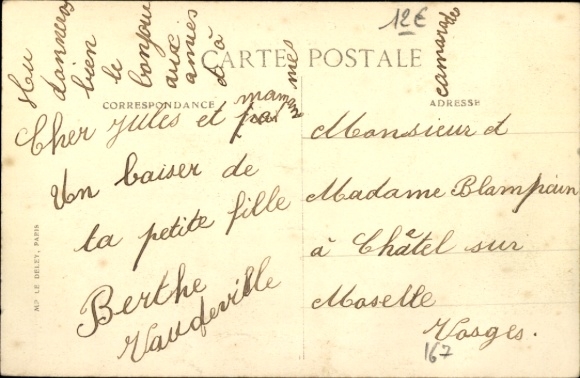 Tu donneras bien le bonjour aux amies d à mes camarade
12€
CARTE POSTALE
CORRESPONDANCE
ADRESSE
Cher Jules et
maman
Un baiser de
ta petite fille
Berthe
Vaudeville
Monsieur d
Madame Blampain
à Châtel sur
Moselle
Vosges.
167
MP LE DELEY, PARIS